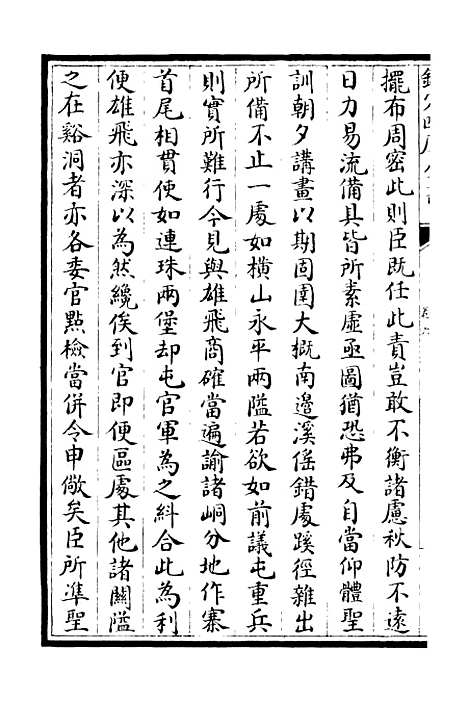 擺布周密此則臣既任此責豈敢不衡諸慮秋防不遠
日力易流備具皆所素虛亟圖猶恐弗及自當仰體聖
訓朝夕講畫以期固圉大概南邊溪傜錯處蹊徑雜出
所備不止一處如橫山永平兩隘若欲如前議屯重兵
則實所難行今見與雄飛商確當遍諭諸峒分地作寨
首尾相貫使如連珠兩堡却屯官軍為之糾合此為利
便雄飛亦深以為然纔俟到官即便區處其他諸關隘
之在谿洞者亦各委官點檢當併令申儆矣臣所準聖